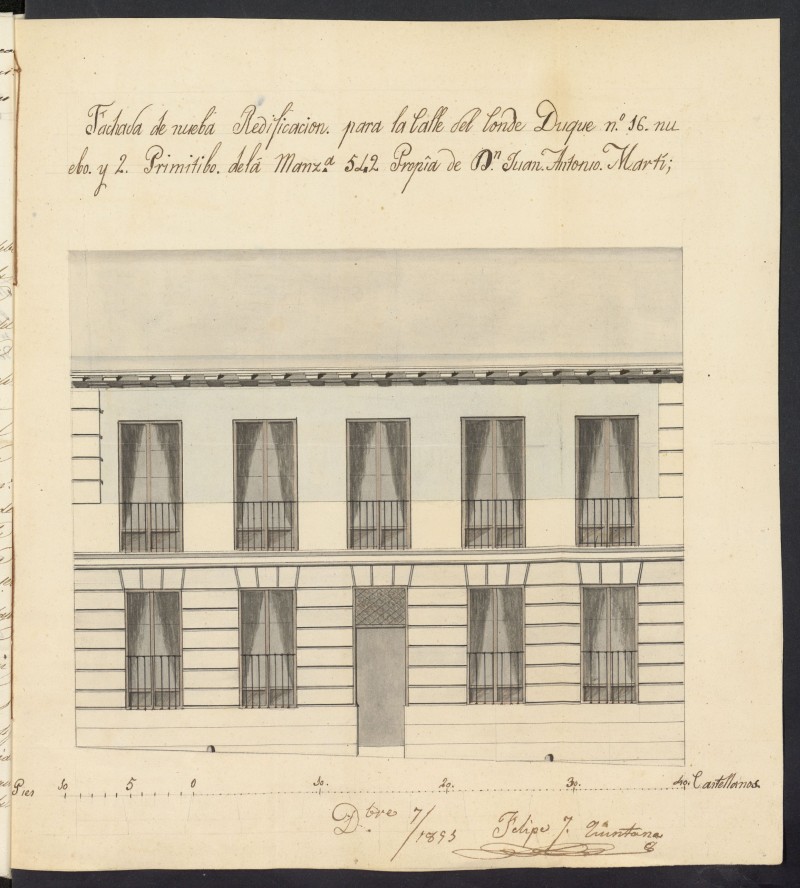 Fachada de nueba Redificacion. para la Calle del Conde Duque nº. 16. nu
ebo. y 2. Primitibo. delá Manz.ª 542 Propia de Dn. Juan. Antonio. Martí;
Pies 10 5 0 10. 20. 30. 40. Castellanos
Dbre 7/1893
Felipe J. Quintana